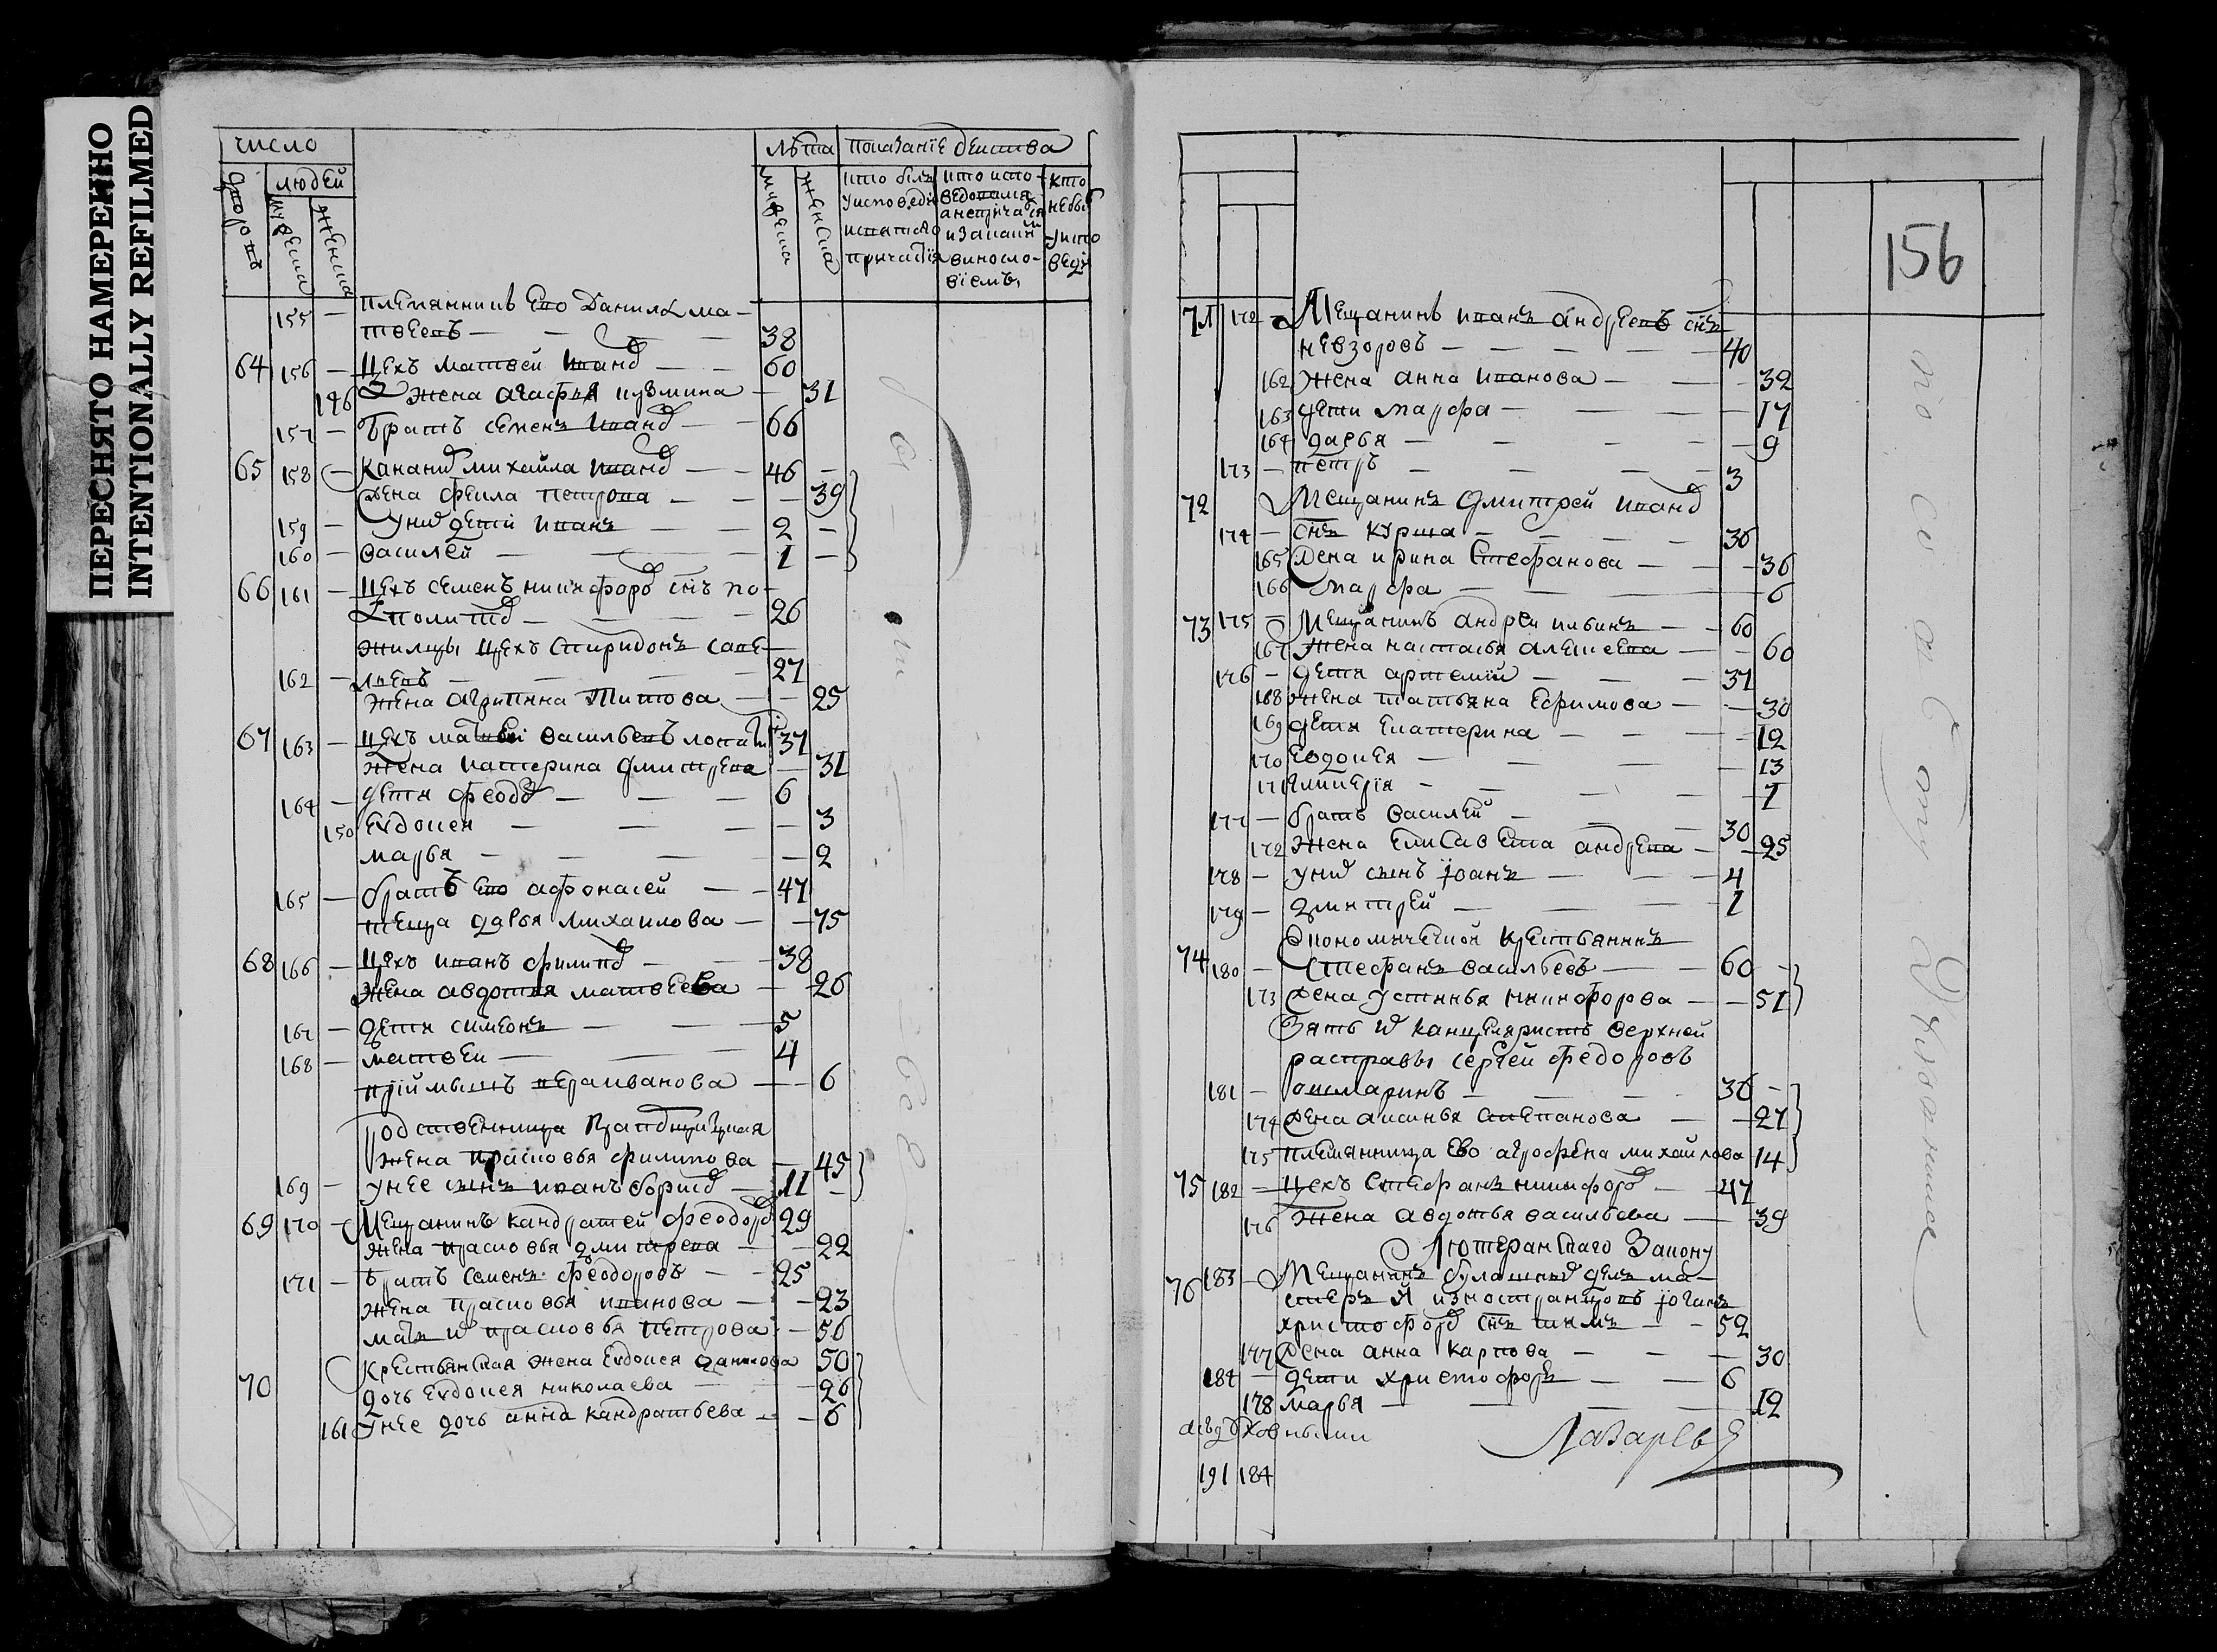 ПЕРЕСНЯТО НАМЕРЕННО
INTENTIONALLY REFILMED
число
лѣта показанїе действа
людей
дворовъ
мужеска
женска
мужеска
женска
кто былъ
у исповеди
и святаго
причастїя
кто испо-
ведался
а не причас
и за каким
виносло-
вїемъ
кто
не был
у испо
веди
155 — племянникъ Ево Данила ма-
твеевъ — — 38
64 156 — цехъ матвей Иванъ — — 60
146 жена агафия кузмина — 31
157 — братъ семенъ Иванъ — — 66
65 158 — михайла Иванъ — — 46 —
жена фекла петрова — — — 39
159 — у них дети иванъ — — 2 —
160 — василей — — 1 —
66 161 — цехъ семенъ никифоръ снъ по-
26
жилцы цехъ спиридонъ саве-
162 — льевъ — — — 27
жена агрипина Титова — — 25
67 163 — цехъ матвеи васильевъ 37
жена катерина дмитрева — 31
164 — детя феодор — — — 6
150 Евдокея — — — — 3
марья — — — — 2
165 — братъ Ево афонасей — — 47
теща дарья михаилова — — 75
68 166 — цехъ иванъ филипъ — — 38
жена авдотья матвеева — 26
167 — детя симеонъ — — 5
168 — матвеи — — — 4
прїймышъ иванова — — 6
родственница
жена прасковья филипова — 45
169 — у нее сынъ иванъ борис — 11 —
69 170 — Мещанинъ кандратей феодоръ 29
жена прасковья дмитрева — — 22
171 — братъ семенъ феодоровъ — — 25
жена прасковья иванова — — 23
мать их прасковья петрова — 56
70 крестьянская жена Евдокея данилова 50
дочь Евдокея николаева — — 26
161 у нее дочь анна кандратьева — — 6
156
71 172 — Мещанинъ иванъ андреевъ снъ
невзоровъ — — — — 40
162 жена анна иванова — — — 32
163 дети марфа — — — 17
164 дарья — — — — 9
173 — петръ — — — 3
72 Мещанинъ дмитрей иванъ
174 — снъ — — — 36
165 жена ирина Стефанова — — — 36
166 марфа — — — 6
73 175 — Мещанинъ андреи ильинъ — — 60
167 жена настасья алексеева — — 60
176 — детя артемїй — — — 37
168 жена татьяна Ефримова — — 30
169 детя Екатерина — — — 12
170 Евдокея — — — 13
171 — — — 7
177 — братъ василей — — 30
172 жена Елисавета андрева — — 25
178 — у них сынъ їоанъ — — — 4
179 — дмитрей — — — 1
Економической крестьянинъ
74 180 — Стефанъ васильевъ — — 60 —
173 жена устинья никифорова — — 51
зять их канцеляристъ верхней
расправы сергей федоровъ
181 — — — 36 —
174 жена аксинья степанова — — 27
175 племянница ево агрофена михайлова 14
75 182 — цехъ Стефанъ никифоръ — 47
176 жена авдотья васильева — — 39
Лютеранскаго Закону
76 183 — Мещанинъ делъ ма-
стеръ из иностранцовъ їоганъ
христофоръ снъ — — 52
177 жена анна карпова — — — 30
184 — дети христофоръ — — 6
178 марья — — — — 12
а съ духовными
191 184
Лазаревъ